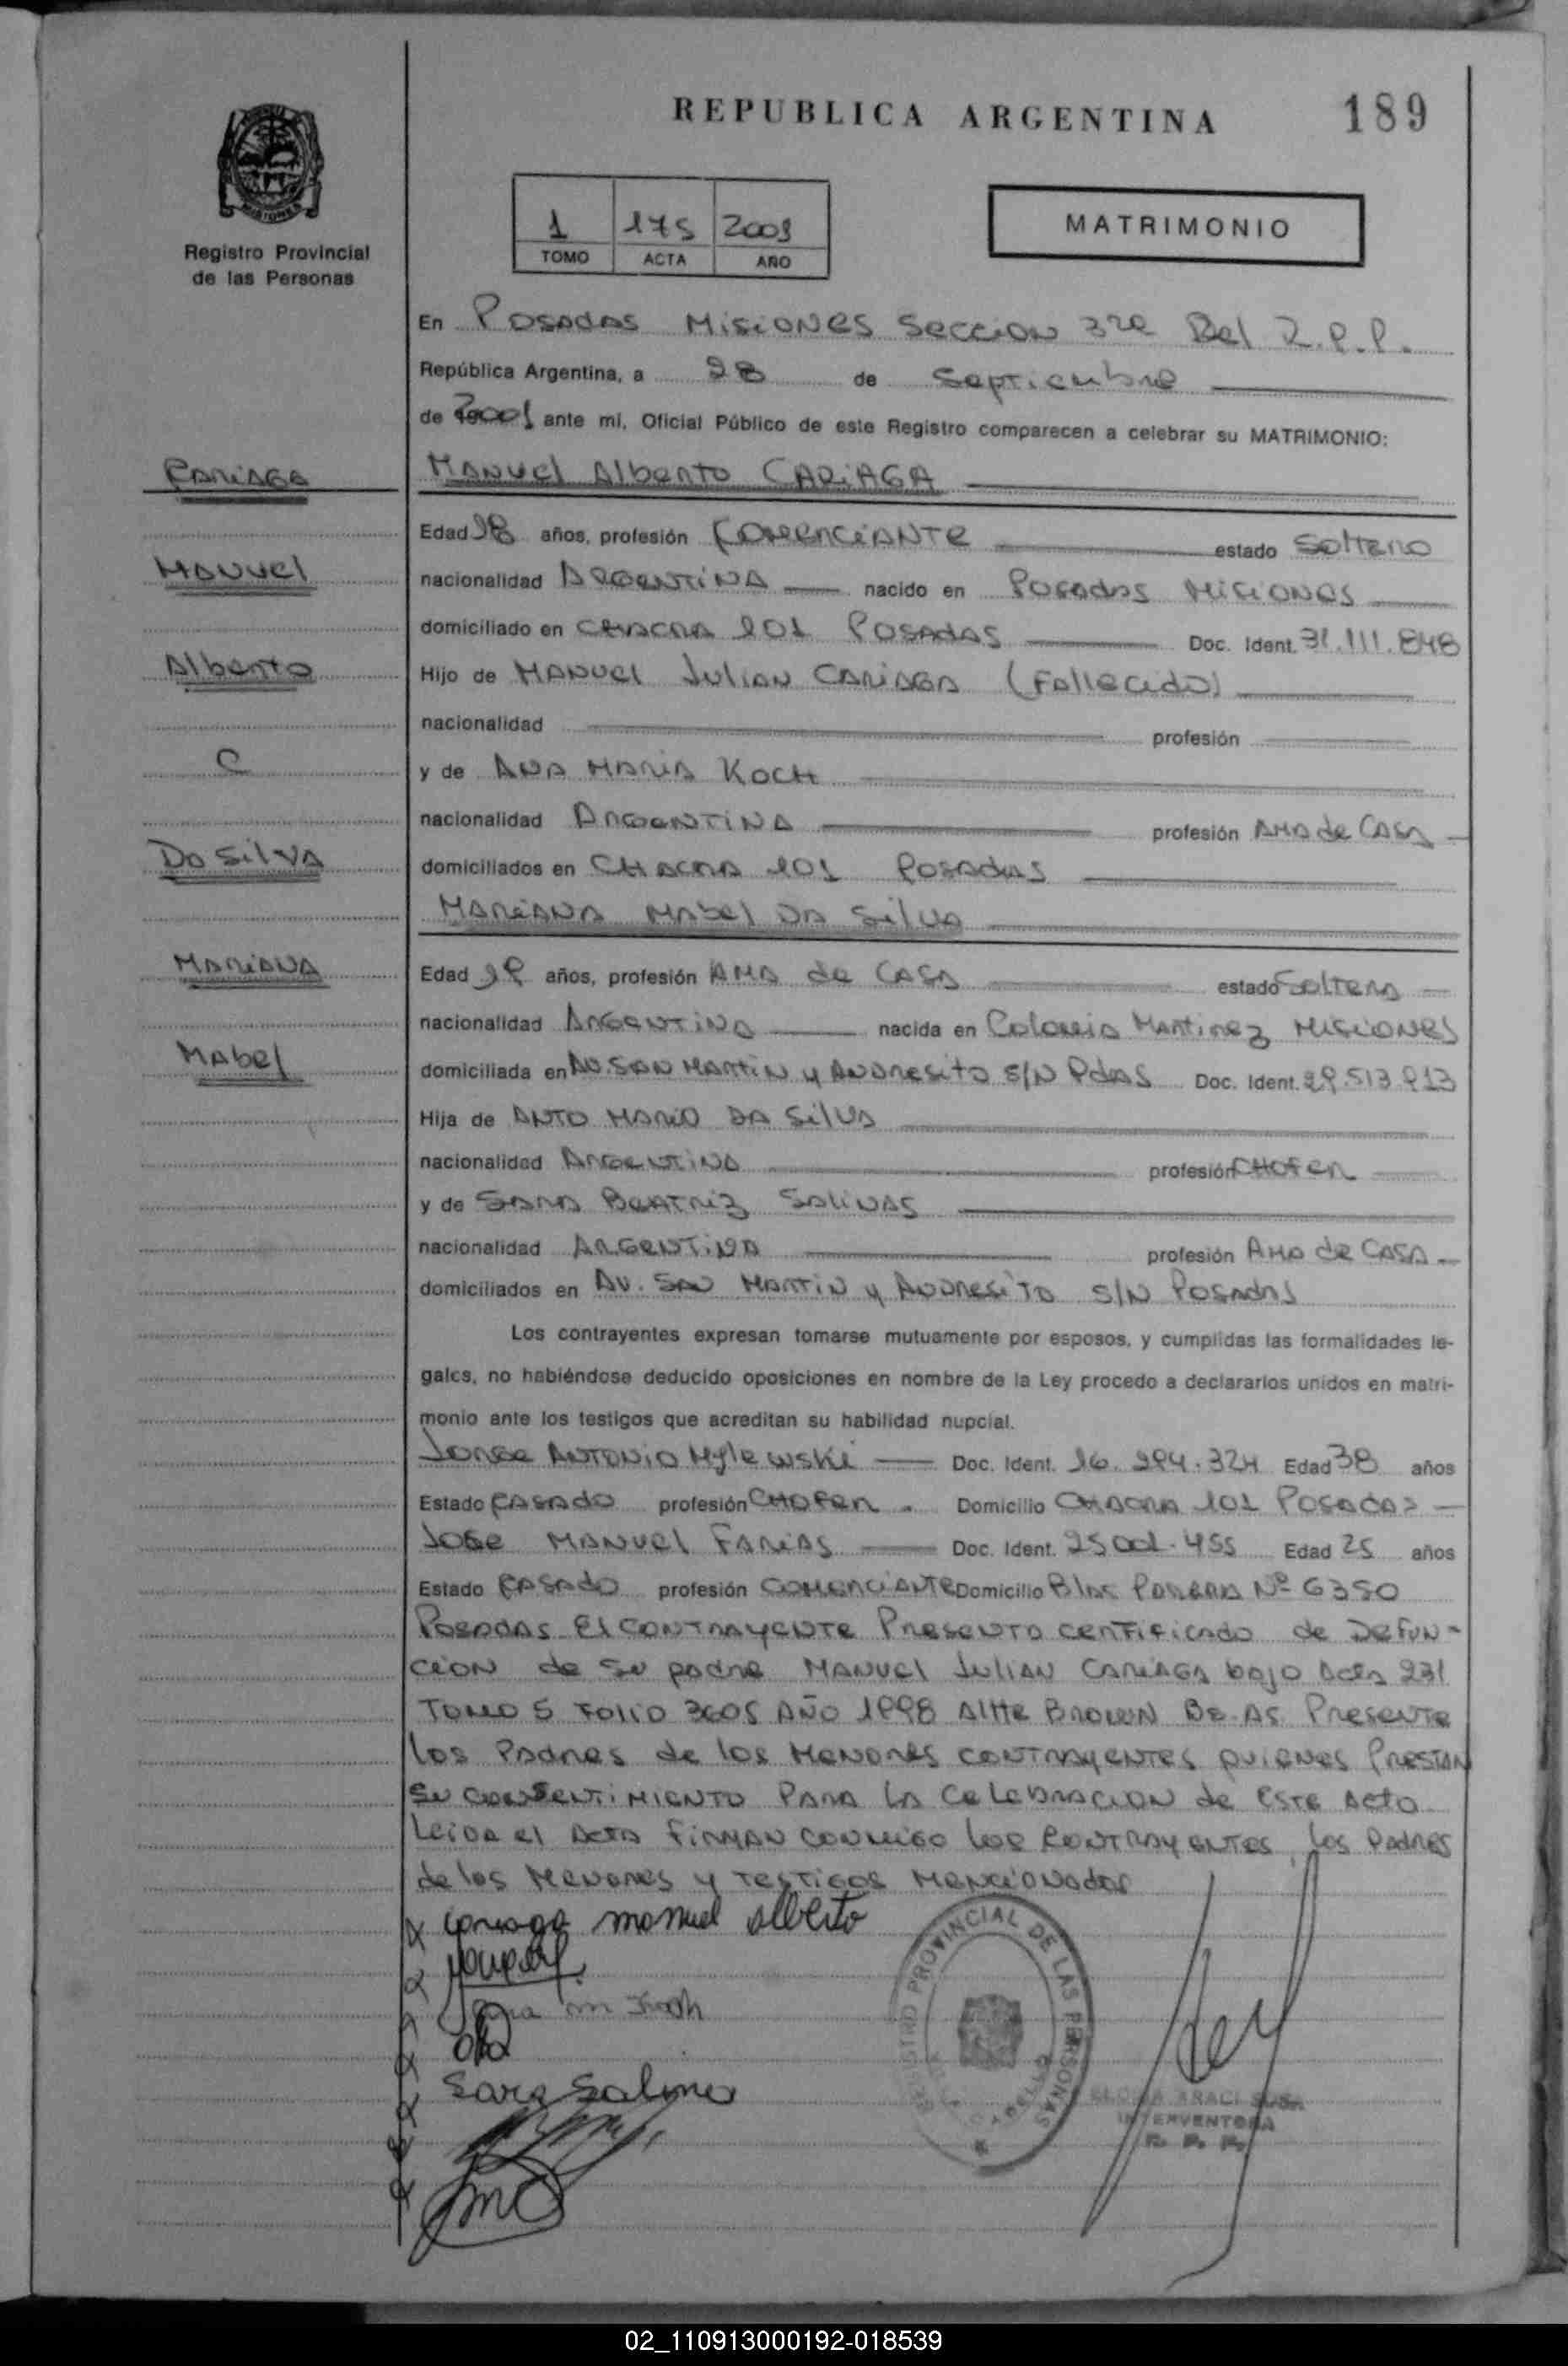 REPUBLICA ARGENTINA
189
MISIONES
Registro Provincial
de las Personas
1 175 2001
TOMO ACTA AÑO
MATRIMONIO
En Posadas Misiones Seccion 3ra Del R.P.P.
República Argentina, a 28 de Septiembre
de 2001 ante mi, Oficial Público de este Registro comparecen a celebrar su MATRIMONIO:
CARIAGA
MANUEL Alberto CARIAGA
Edad 18 años, profesión COMERCIANTE estado Soltero
MANUEL
nacionalidad ARGENTINA nacido en Posadas Misiones
domiciliado en CHACRA 101 POSADAS Doc. Ident. 31.111.848
Alberto
Hijo de MANUEL JULIAN CARIAGA (Fallecido)
nacionalidad profesión
C
y de ANA MARIA KOCH
nacionalidad ARGENTINA profesión AMA de CASA
DA SILVA
domiciliados en CHACRA 101 Posadas
MARIANA MABEL DA SILVA
MARIANA
Edad 19 años, profesión AMA de CASA estado Soltera
nacionalidad ARGENTINA nacida en Colonia Martinez Misiones
MABEL
domiciliada en AV. SAN MARTIN y ANDRESITO S/N Pdas Doc. Ident. 29.513.913
Hija de ANTO MARIO DA SILVA
nacionalidad ARGENTINA profesión CHOFER
y de SARA BEATRIZ SALINAS
nacionalidad ARGENTINA profesión AMA de CASA
domiciliados en AV. SAN MARTIN y ANDRESITO S/N POSADAS
Los contrayentes expresan tomarse mutuamente por esposos, y cumplidas las formalidades le-
gales, no habiéndose deducido oposiciones en nombre de la Ley procedo a declararlos unidos en matri-
monio ante los testigos que acreditan su habilidad nupcial.
JORGE ANTONIO Mylewski Doc. Ident. 16.294.324 Edad 38 años
Estado CASADO profesión CHOFER Domicilio CHACRA 101 POSADAS
JOSE MANUEL FARIAS Doc. Ident. 25 001.455 Edad 25 años
Estado CASADO profesión COMERCIANTE Domicilio Blas PARERA Nº 6350
POSADAS El CONTRAYENTE PRESENTA CERTIFICADO de DEFUN-
CION de su padre MANUEL JULIAN CARIAGA bajo Acta 231
TOMO 5 FOLIO 3605 AÑO 1998 Alte BROWN BS. AS. PRESENTE
los PADRES de los MENORES CONTRAYENTES QUIENES PRESTAN
SU CONSENTIMIENTO PARA LA CELEBRACION de ESTE Acto
LEIDA el ACTA FIRMAN CONMIGO los CONTRAYENTES, los PADRES
de los MENORES y TESTIGOS MENCIONADOS
Cariaga manuel alberto
Sara Salinas
REGISTRO PROVINCIAL DE LAS PERSONAS
INTERVENTORA
R. P. P.
02_110913000192-018539